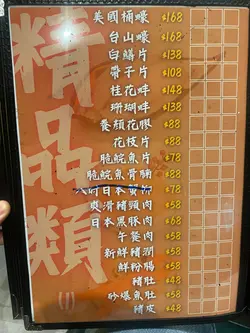 精品類
美國桶蠔 $168
台山蠔 $168
白鱔片 $138
帶子片 $108
桂花蚌 $148
珊瑚蚌 $138
養顏花膠 $88
花枝片 $88
脆鯇魚片 $78
脆鯇魚骨腩 $88
日本蟹柳 $78
爽滑豬頸肉 $58
日本黑豚肉 $68
午餐肉 $58
新鮮豬潤 $58
鮮粉腸 $58
豬肚 $58
砂爆魚肚 $58
豬皮 $48